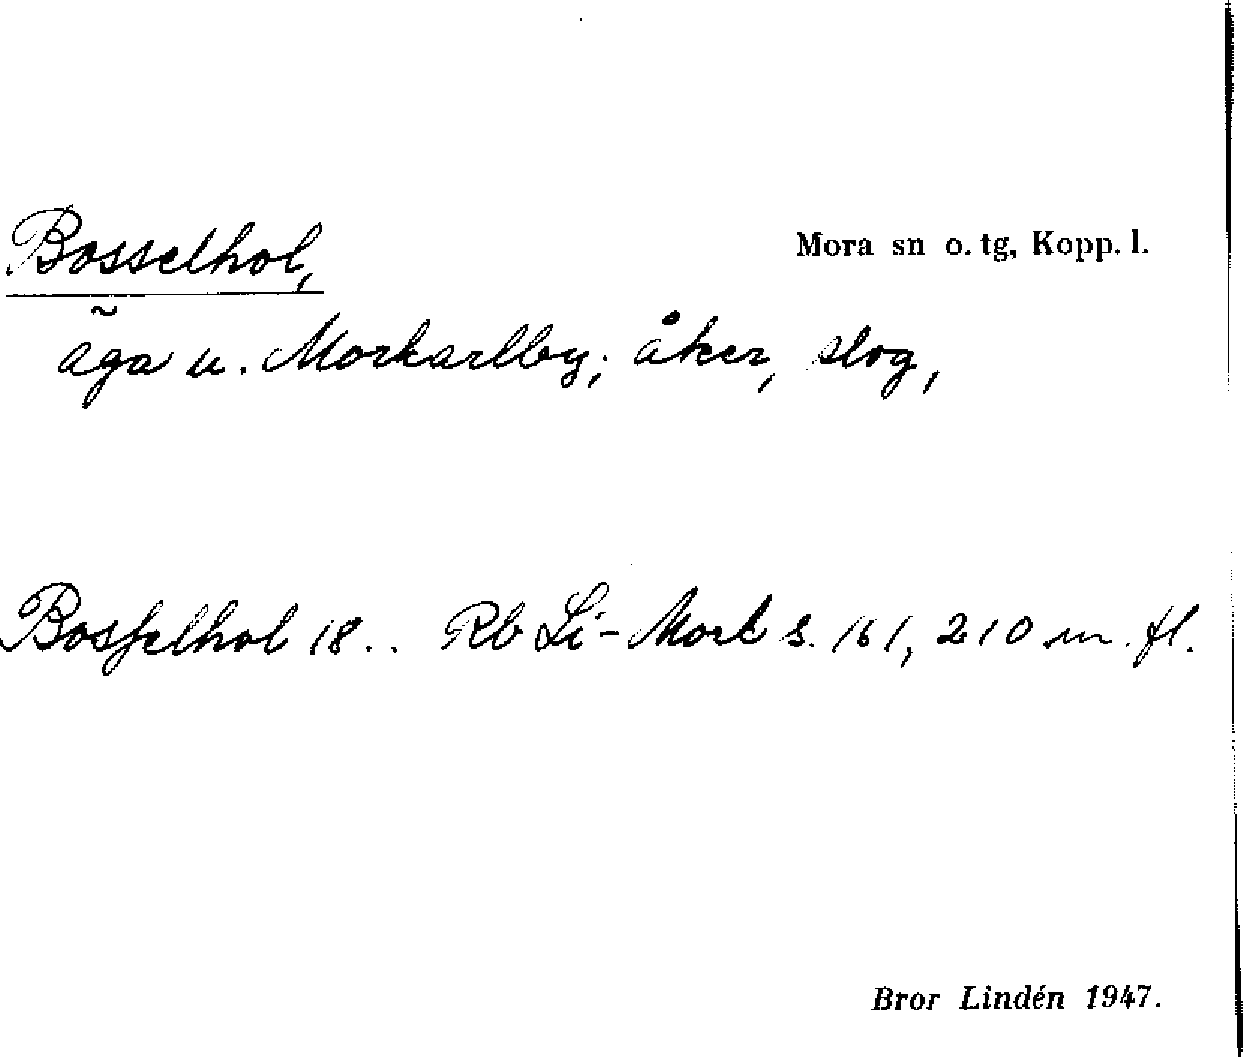 Bosselhol,
Mora sn o. tg, Kopp. l.
äga u. Morkarlby; åker, slog,
Bosſelhol 18.. Rb Li-Mork s. 161, 210 m. fl.
Bror Lindén 1947.